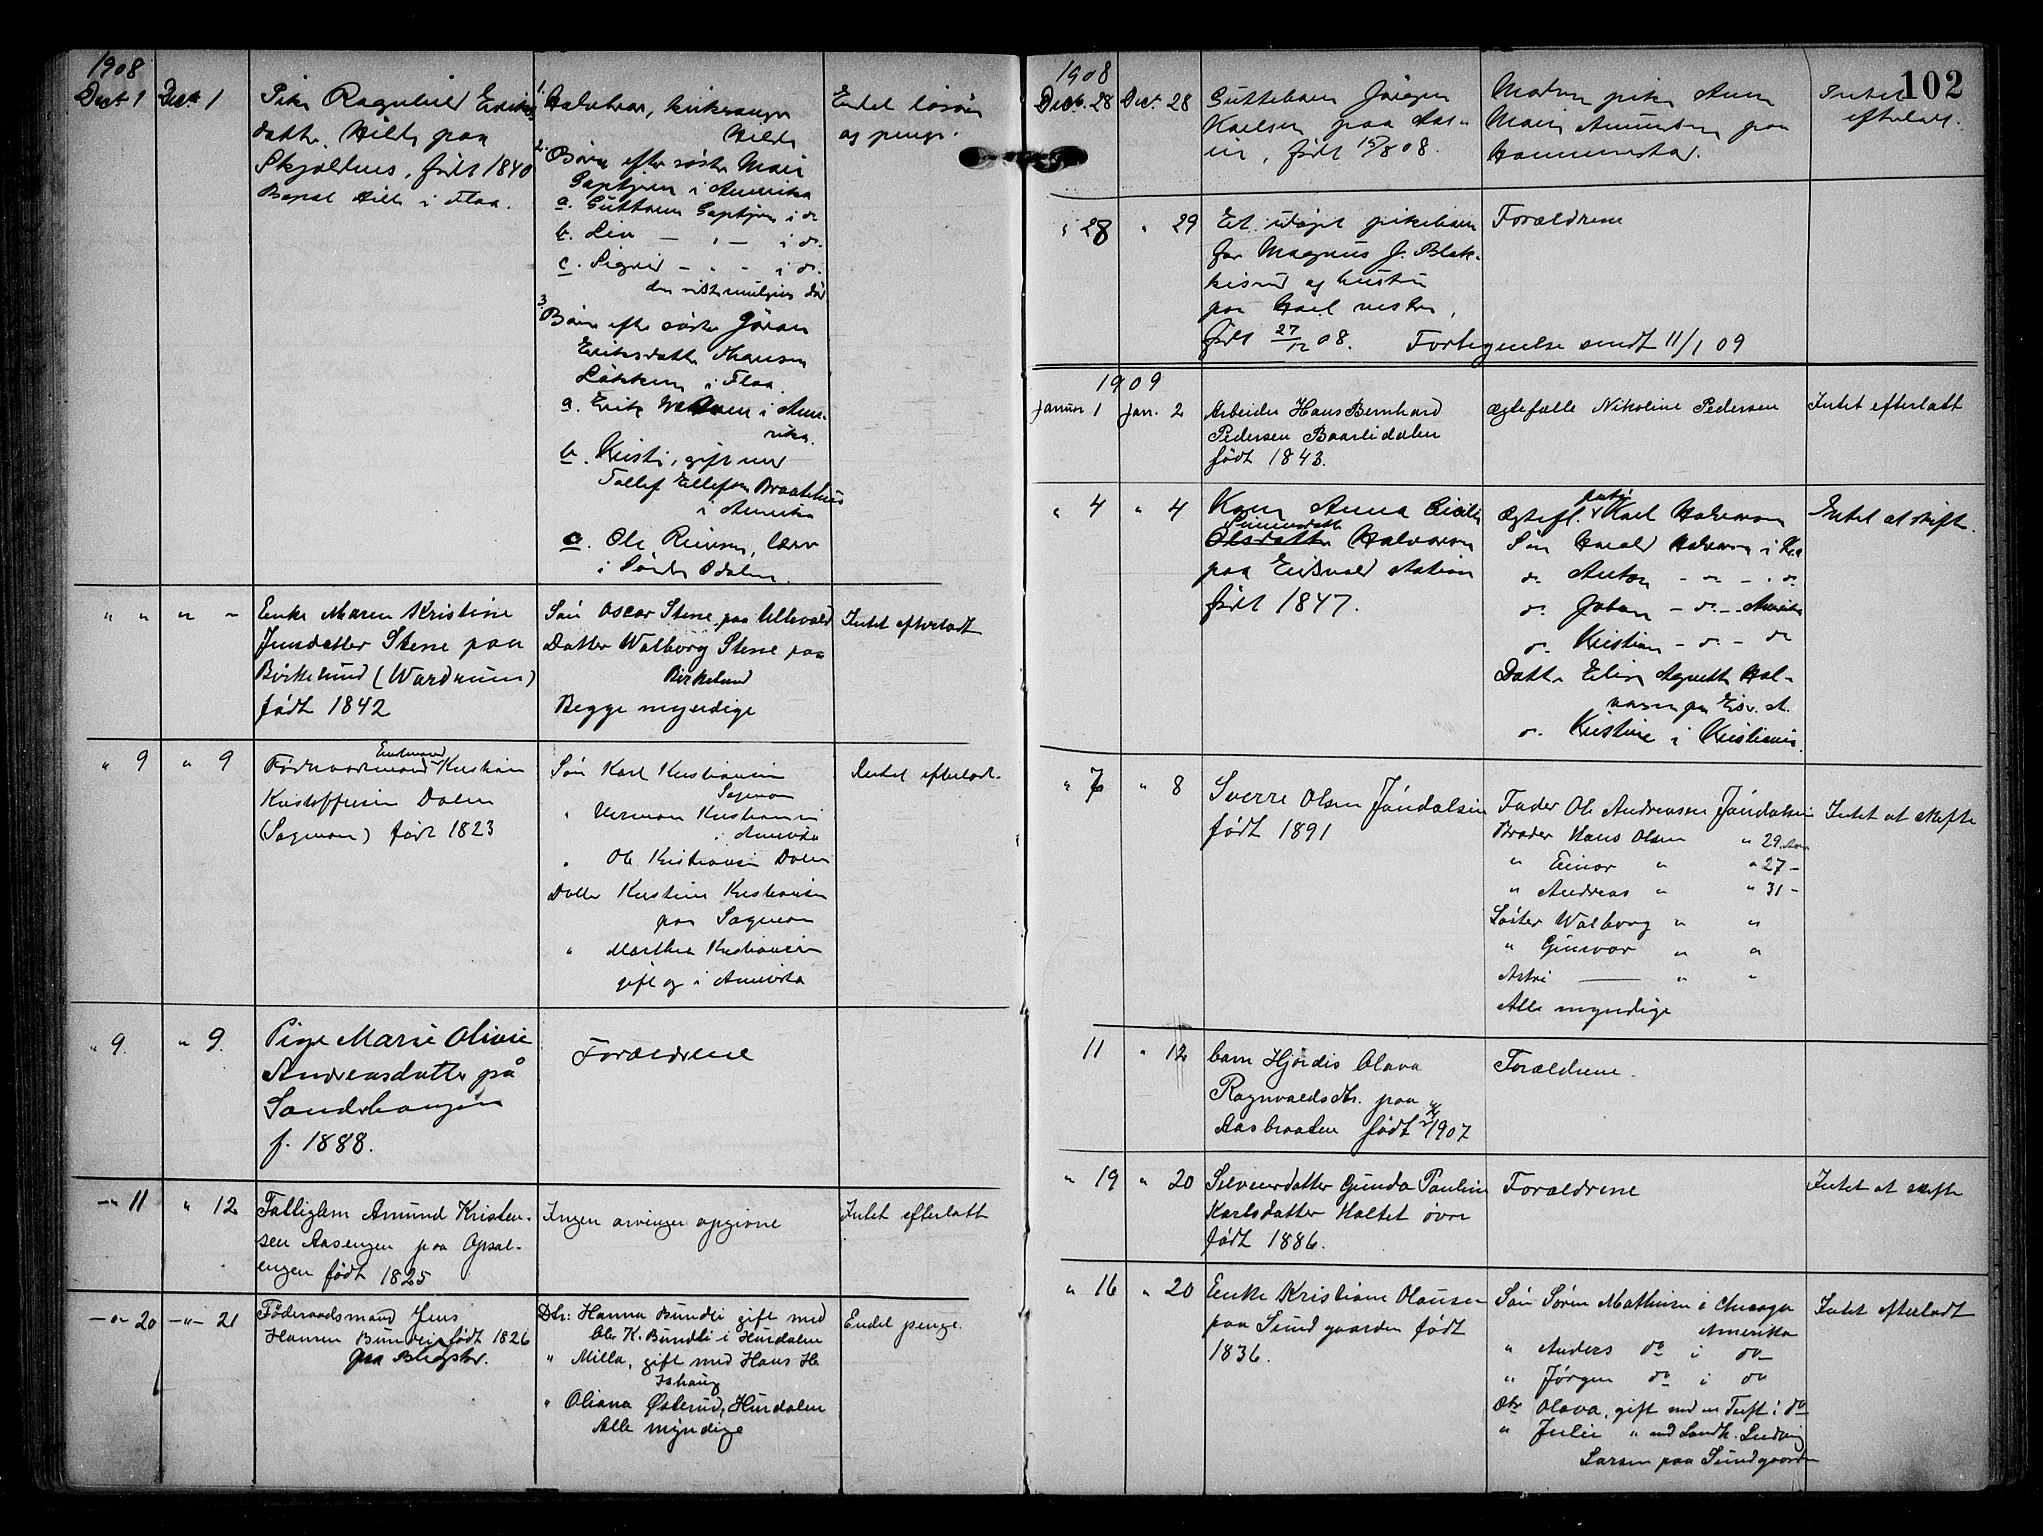 1908
Dect 1
Dect 1
Pike Ragnhild Eriks
datter Hilde paa
Skjaldnes, født 1840
i Flaa.
1. Halvbror, kirkesanger
Hilde
2. Børn efter søster Mari
i Amerika
a. i do
b. – " – i do.
c. Sigrid – " – i do.
3. Børn efter søster Jöran
Eriksdatter
Løkken i Flaa.
a. Erik i Ame-
rika.
b. Kristi, gift med
Tollef Ellefsen Braatehus
i Amerika
c. Ole Reiersen,
i Søndre Odalen.
Endel løsøre
og penge.
" " " –
Enke Maren Kristine
Jensdatter Stene paa
Birkelund (Wardrum)
født 1842
Søn Oscar Stene paa Ullevold
Datter Walborg Stene paa
Birkelund
Begge myndige
Intet efterladt
" 9 " 9
Enkemand
Føderaadsmand Kristian
Kristoffersen Dalen
(Sagmoen) født 1823
Søn Karl Kristiansen
Sagmoen
" Herman Kristiansen
i Amerika
" Ole Kristiansen Dalen
Datter Kristine Kristiansen
paa Sagmoen
" Marthea Kristiansen
gift og i Amerika
Intet efterladt.
" 9. " 9.
Pige Marie Olivie
Andreasdatter på
Sandshaugen
f. 1888.
Forældrene
–"– 11 " 12
Fattiglem Amund Kristen-
sen Aasengen paa Opsal-
engen født 1825
Ingen arvinger opgivne
Intet efterlatt
–"– 20 –"– 21
Føderaadsmand Jens
Hansen Bundli født 1826
paa
Dtr: Hanna Bundli gift med
Ole K. Bundli i Hurdalen
" Milla, gift med Hans H.
Ishaug
" Oliana Østerud, Hurdalen
Alle myndige
Endel penge.
102
1908
Decb. 28 Dect. 28
Guttebarn Jørgen
Karlsen paa
født 15/8 08.
Moren pike Anna
Marie Amundsen paa
Hammerstad.
Intet
efterlatt.
" 28 " 29
Et udøpt pikebarn
for Magnus J. Blak-
kisrud og hustru
paa Hael vestre,
født 27/12 08.
Forældrene
Fortegnelse sendt 11/1 09
1909
Januar 1 Jan. 2
Arbeider Hans Bernhard
Pedersen Baarlidalen
født 1843.
Ægtefælle Nikoline Pedersen
Intet efterlatt
" 4 " 4
Kone Anna Cicilie
Simensdatter
Olsdatter Halvorsen
paa Eidsvold station
født 1847.
Ægtefl. Karl Halvorsen
Søn Harald Halvorsen i Kra
do. Anton – do – i do.
do. Johan – do. – Amerika
do. Kristian – do. – do
Datter Elise Agnethe Hal-
vorsen paa Eidsv. st.
do. Kristine i Kristiania.
Intet at skifte.
" 7 " 8
Sverre Olsen Jøndalsen
født 1891
Fader Ole Andreassen Jøndalsen
Broder Hans Olsen " 29 Aar
" Einar " " 27 –
" Andreas " " 31 –
Søster Walborg " "
" Gunvor " "
Astri — " "
Alle myndige
Intet at skifte
11 " 12
barn Hjørdis Olava
Ragnvaldsdtr. paa
Aasbraaten født 1907
Forældrene.
" 19 " 20
Selveierdatter Gunda Pauline
Karlsdatter Holtet øvre
født 1886.
Forældrene
Intet at skifte
" 16 " 20
Enke Kristiane Olausen
paa Sundgaarden født
1836.
Søn Søren Mathisen i Chicago
Amerika
" Anders do i do
" Jørgen do i do
Dtr Olava, gift med en Tuft i do
" Julie " med Landh. Ludvig
Larsen paa Sundgaarden
Intet efterladt